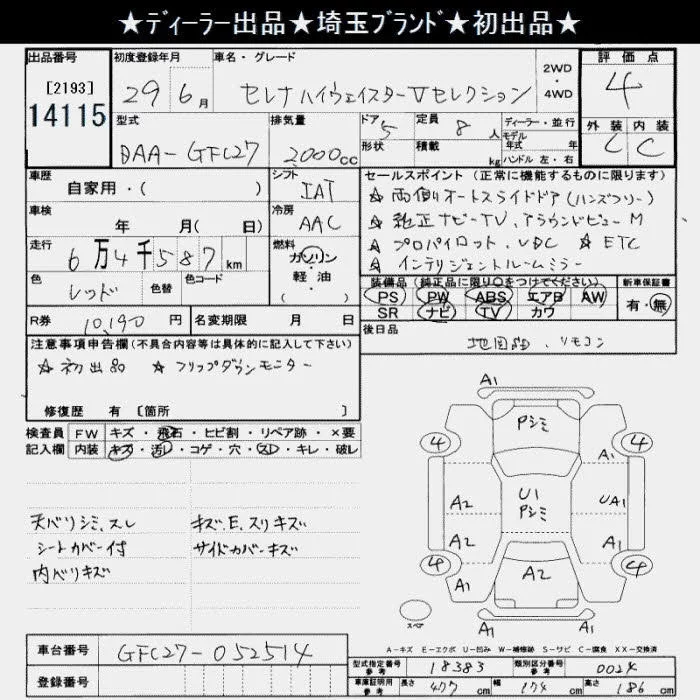 ★ディーラー出品★埼玉ブランド★初出品★
出品番号 初度登録年月 車名・グレード 評価点
[2193] 29 6月 セレナハイウェイスターVセレクション 2WD・4WD 4
14115
型式 排気量 ドア 5 定員 8人 ディーラー・並行 外装 内装
DAA-GFC27 2000cc 形状 積載 kg モデル年式 年 C C
ハンドル 左・右
車歴 シフト セールスポイント (正常に機能するものに限ります)
自家用・( ) IAT ★両側オートスライドドア(ハンズフリー)
車検 冷房 ★純正ナビTV、アラウンドビューM
年 月( 日) AAC ★プロパイロット、VDC ★ETC
走行 燃料 ★インテリジェントルームミラー
6万4千587km ガソリン・軽油
( )
色 色替 色コード 装備品 (純正品に限り○をつけてください) 新車保証書
レッド PS PW ABS エアB AW 有・無
SR ナビ TV カワ
R券 10,190円 名変期限 月 日 後日品
地図詰、リモコン
注意事項申告欄(不具合内容等は具体的に記入して下さい)
★初出品 ★フリップダウンモニター
修復歴 有 [箇所 ]
検査員 FW キズ・飛石・ヒビ割・リペア跡・×要
記入欄 内装 キズ・汚レ・コゲ・穴・スレ・キレ・破レ
天バリシミ、スレ キズ、E、スリキズ
シートカバー付 サイドカバーキズ
内バリキズ
A1
Pシミ
4 4
A1
A2 U1 UA1
Pシミ
A2 A1
4 4
A1 A2 A1
A1
スペア
A-キズ E-エクボ U-凹み W-補修跡 S-サビ C-腐食 XX-交換済
車台番号 GFC27-052514
型式指定番号 参考 18383 類別区分番号 参考 0024
登録番号
車庫証明用 参考 長さ 477cm 幅 174cm 高さ 186cm